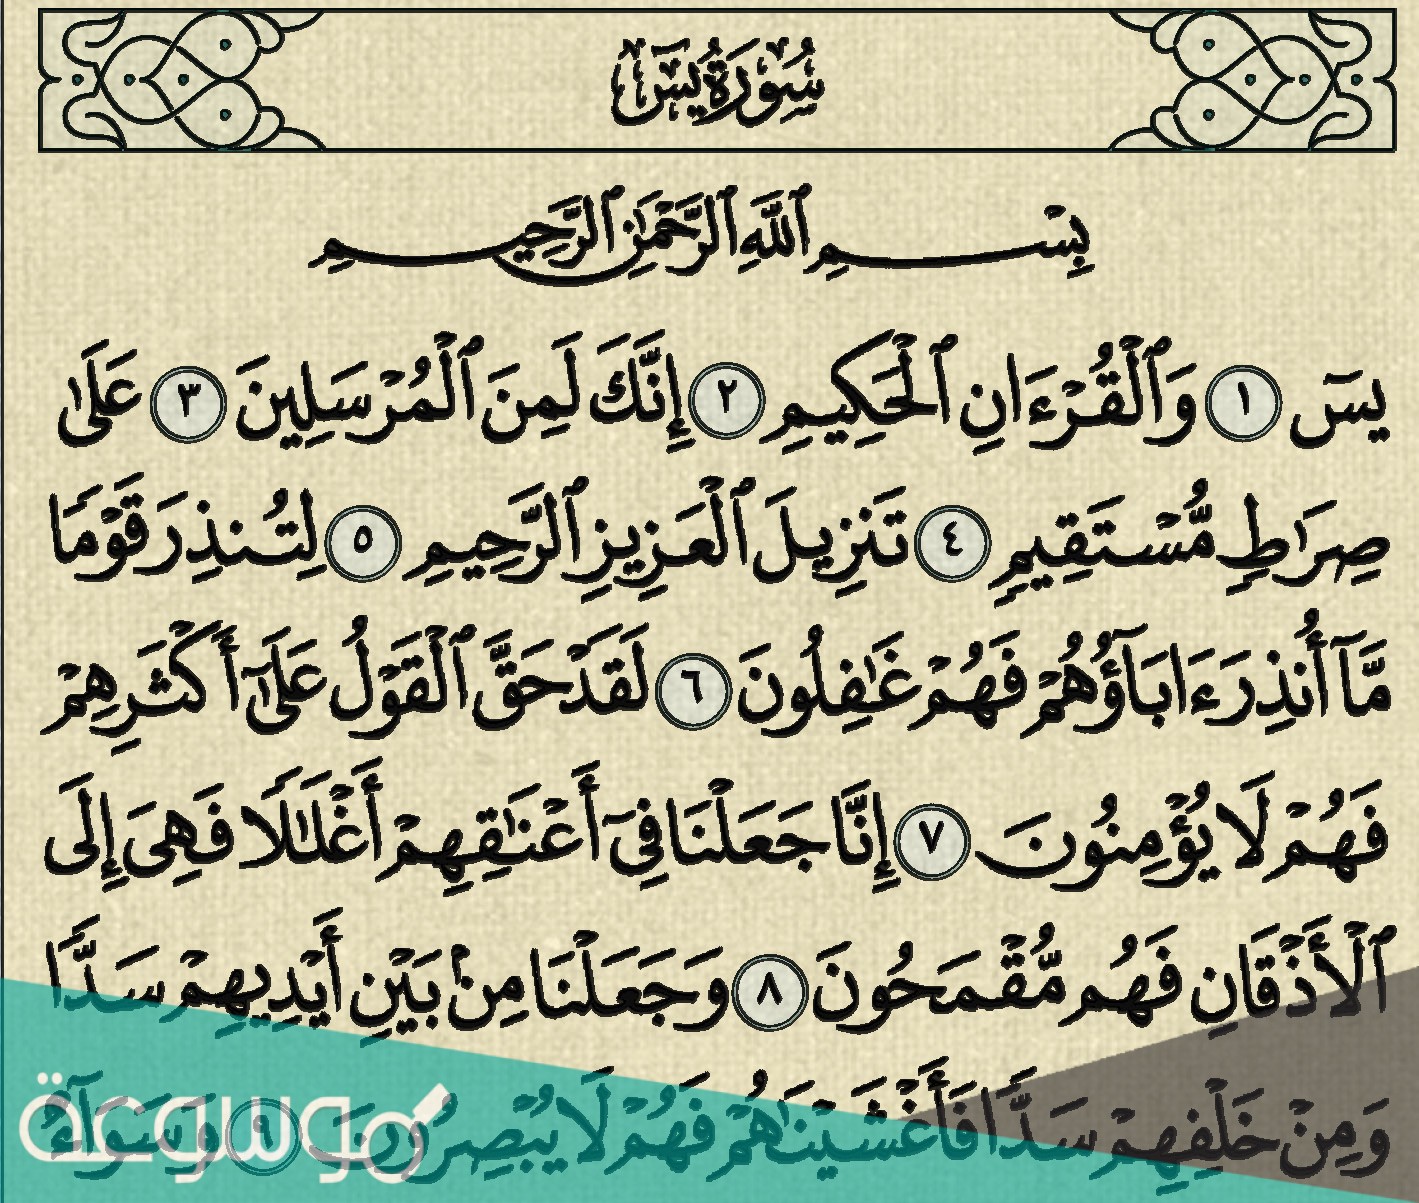 سُورَةُ يسٓ
بِسْمِ ٱللَّهِ ٱلرَّحْمَٰنِ ٱلرَّحِيمِ
يسٓ ١ وَٱلْقُرْءَانِ ٱلْحَكِيمِ ٢ إِنَّكَ لَمِنَ ٱلْمُرْسَلِينَ ٣ عَلَىٰ
صِرَٰطٍ مُّسْتَقِيمٍ ٤ تَنزِيلَ ٱلْعَزِيزِ ٱلرَّحِيمِ ٥ لِتُنذِرَ قَوْمًا
مَّآ أُنذِرَ ءَابَآؤُهُمْ فَهُمْ غَٰفِلُونَ ٦ لَقَدْ حَقَّ ٱلْقَوْلُ عَلَىٰٓ أَكْثَرِهِمْ
فَهُمْ لَا يُؤْمِنُونَ ٧ إِنَّا جَعَلْنَا فِىٓ أَعْنَٰقِهِمْ أَغْلَٰلًا فَهِىَ إِلَى
ٱلْأَذْقَانِ فَهُم مُّقْمَحُونَ ٨ وَجَعَلْنَا مِنۢ بَيْنِ أَيْدِيهِمْ سَدًّا
وَمِنْ خَلْفِهِمْ سَدًّا فَأَغْشَيْنَٰهُمْ فَهُمْ لَا يُبْصِرُونَ ٩ وَسَوَآءٌ
موسوعة